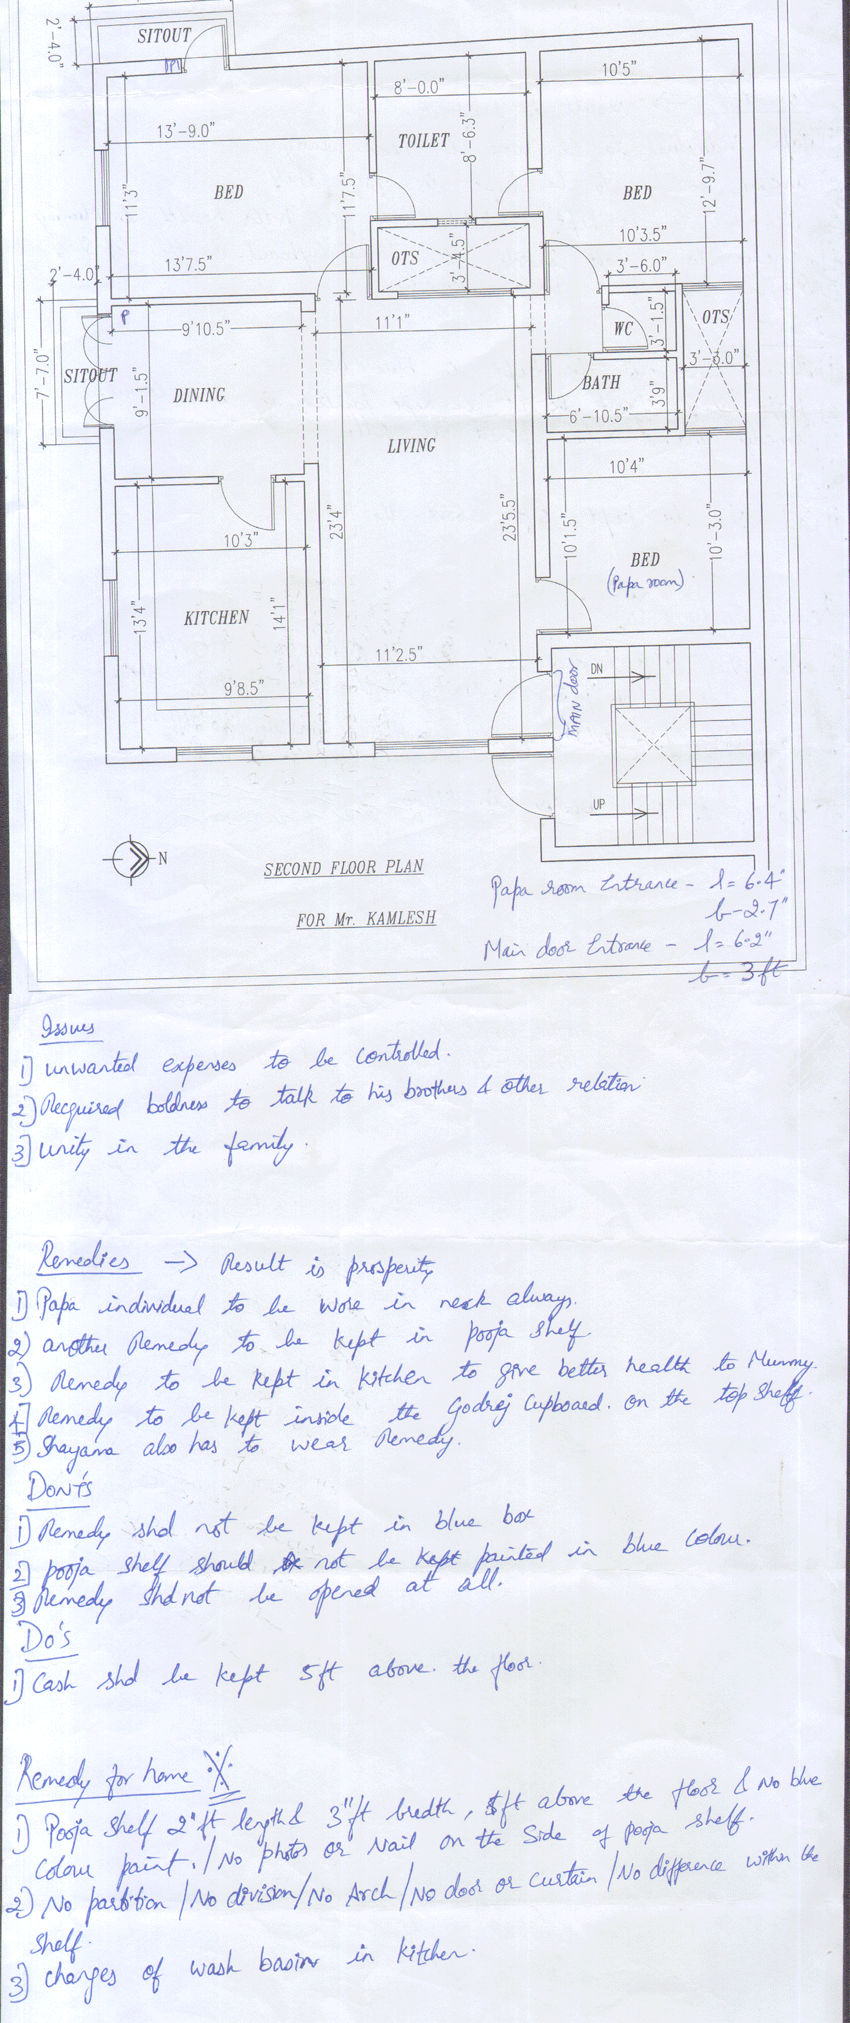 2'-4.0"
SITOUT
PP
13'-9.0"
8'-0.0"
10'5"
TOILET
8'-6.3"
11'3"
11'7.5"
12'-9.7"
BED
BED
13'7.5"
OTS
3'-4.5"
10'3.5"
2'-4.0"
3'-6.0"
P
9'10.5"
11'1"
WC
3'-1.5"
OTS
3'-6.0"
7'-7.0"
SITOUT
9'-1.5"
DINING
BATH
3'9"
6'-10.5"
LIVING
10'4"
23'4"
23'5.5"
10'1.5"
10'-3.0"
10'3"
BED
(Papa room)
13'4"
KITCHEN
14'1"
11'2.5"
9'8.5"
MAIN door
DN
UP
N
SECOND FLOOR PLAN
FOR Mr. KAMLESH
Papa room Entrance - l = 6.4"
b - 2.7"
Main door Entrance - l = 6.2"
b = 3 ft
Issues
1] unwanted expenses to be controlled.
2] Recquired boldness to talk to his brothers & other relation
3] unity in the family.
Remedies -> Result is prosperity
1] Papa individual to be wore in neck always.
2) another Remedy to be kept in pooja shelf
3) Remedy to be kept in kitchen to give better health to Mummy.
4] Remedy to be kept inside the Godrej Cupboard. on the top shelf.
5) Shayama also has to wear Remedy.
DONT'S
1] Remedy shd not be kept in blue box
2] pooja shelf should not be kept painted in blue colour.
3] Remedy shd not be opened at all.
Do's
1] Cash shd be kept 5ft above. the floor.
Remedy for home
1] Pooja Shelf 2" ft length & 3" ft bredth, 5ft above the floor & No blue
colour paint. / No photos or Nail on the Side of pooja shelf.
2) No partition / No division / No Arch / No door or curtain / No difference within the
shelf.
3] changes of wash basin in kitchen.